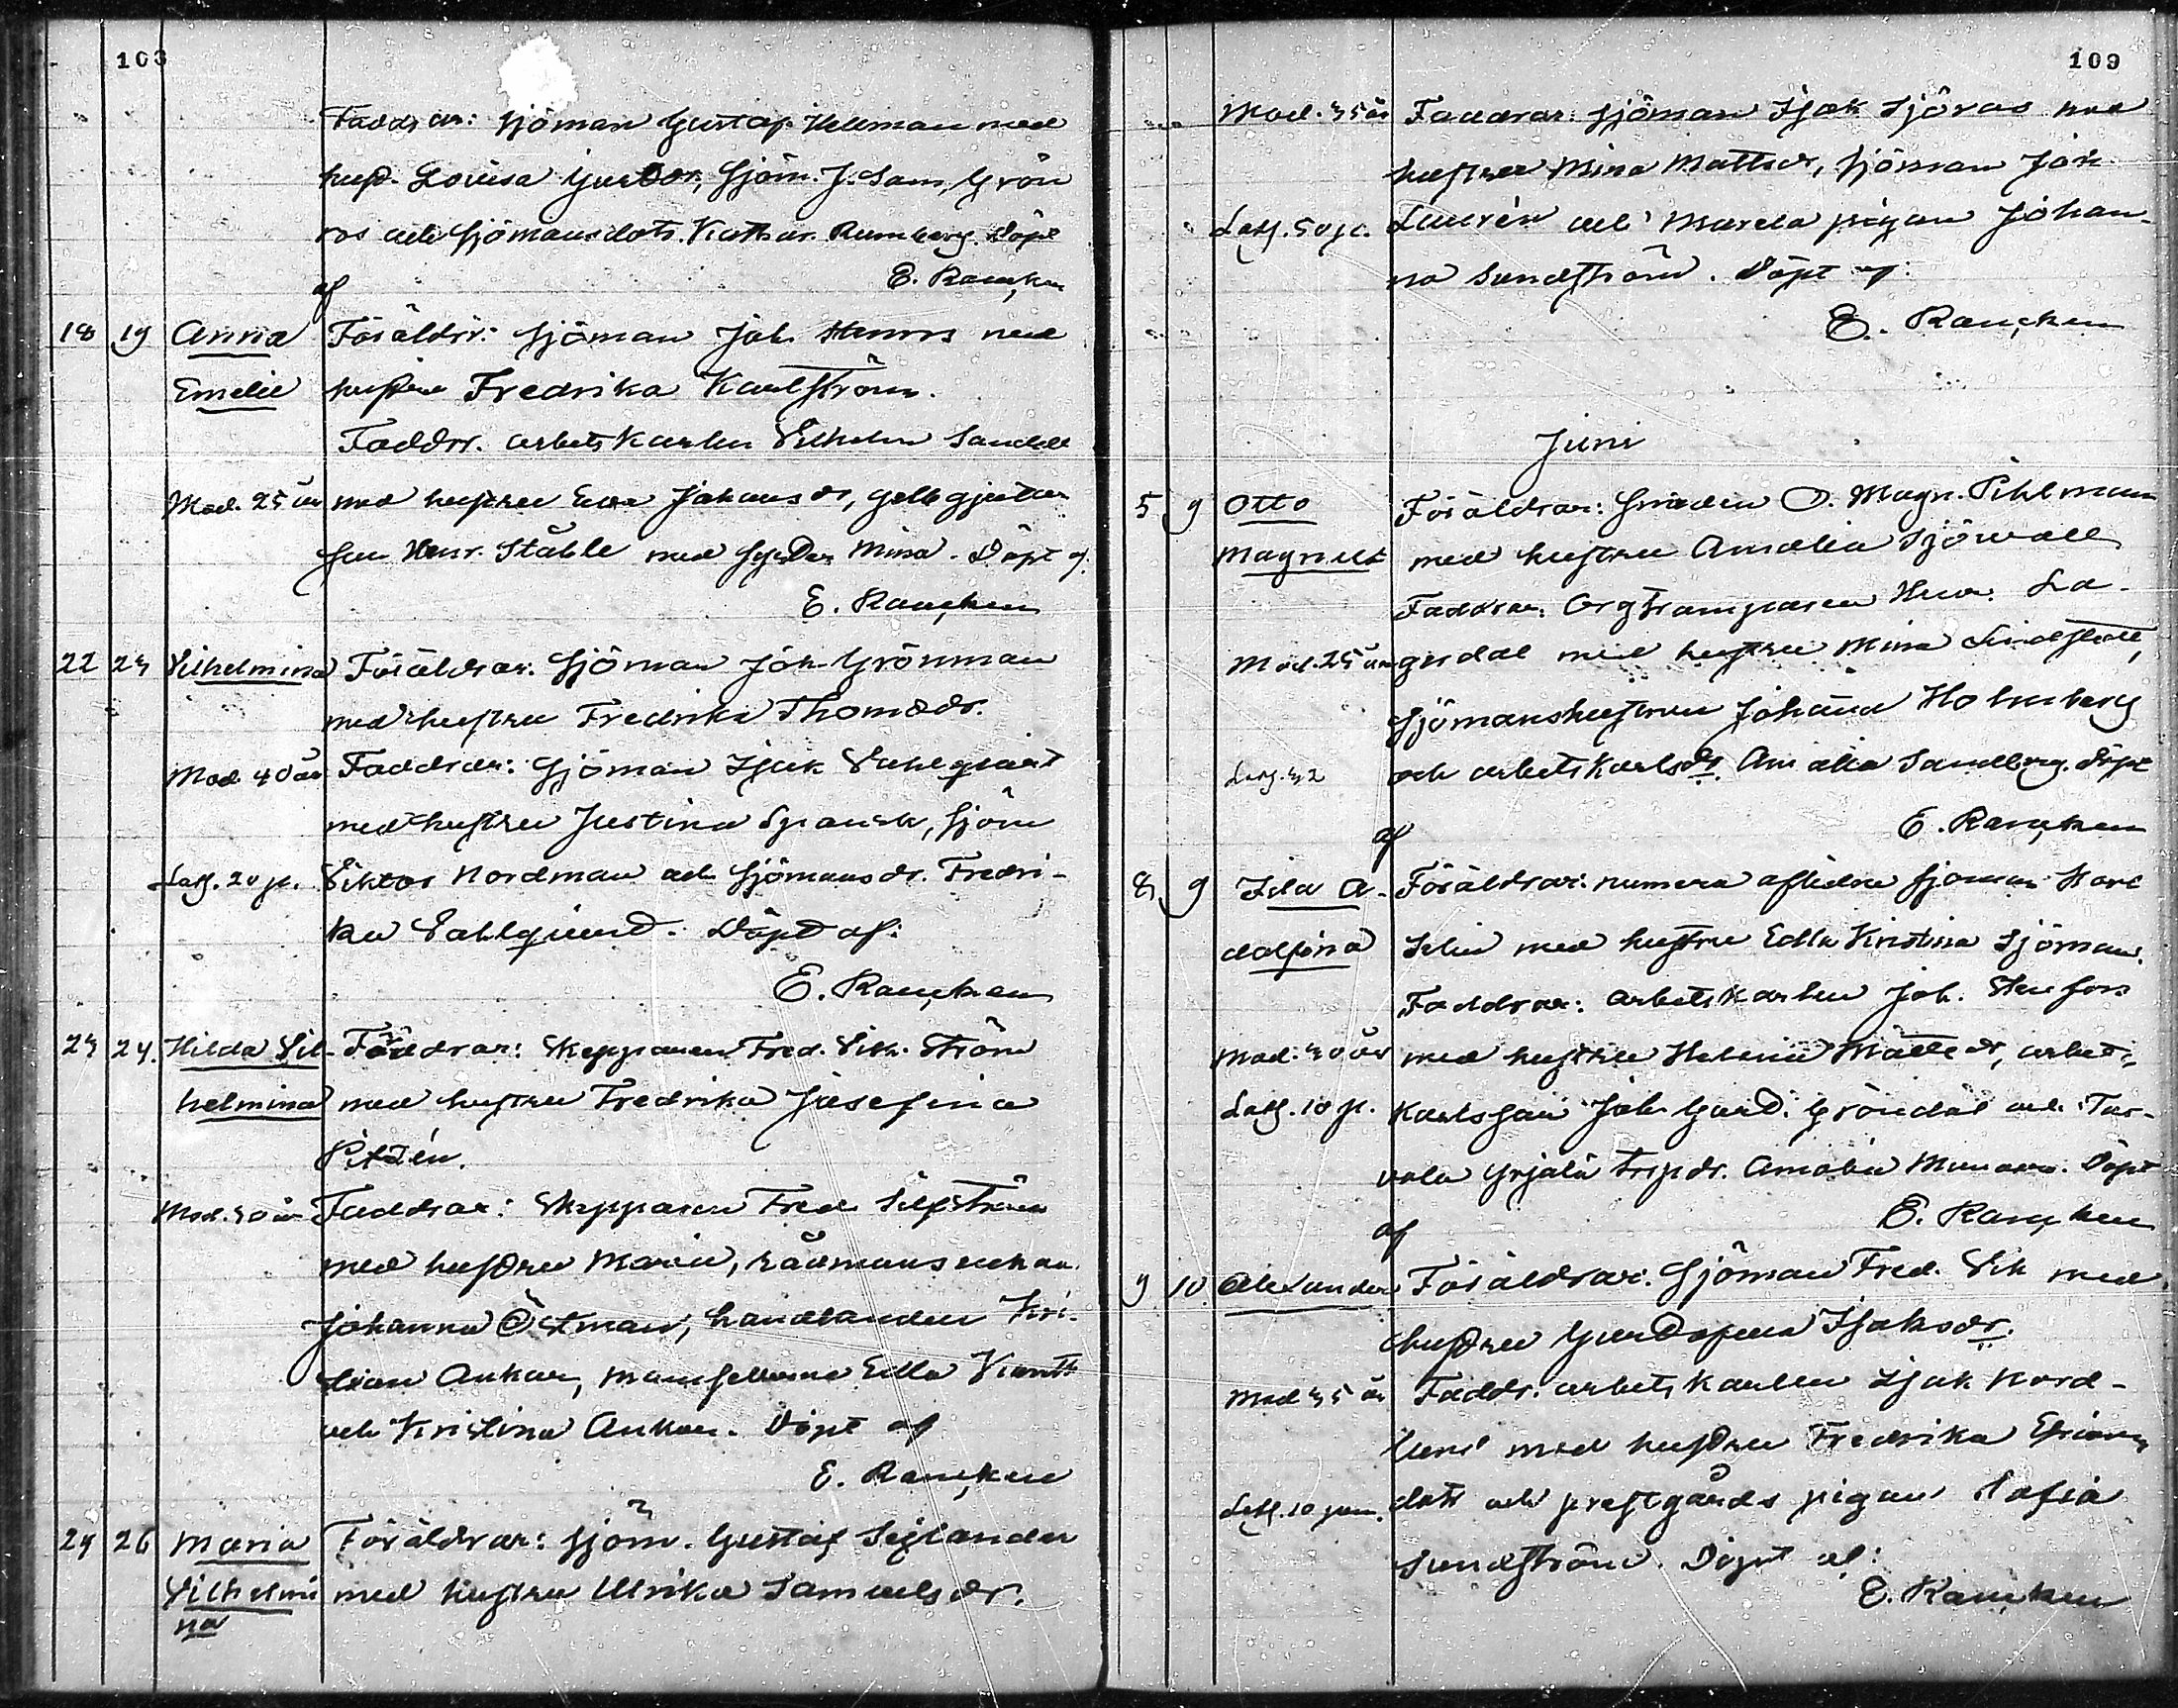 108
Faddrar: sjöman Gustaf Hellman med
hust. Lovisa Gustdr, sjöm. J. Sam. Grön
ros och sjömansdotr. Kathar. Rumberg. Döpt
af E. Rancken
18 19 Anna Föräldrr: sjöman Joh. Henrs med
Emelie hustru Fredrika Karlström.
Faddrr. arbetskarlen Vilhelm Sandell
Mod. 25 år med hustru Eva Johansdr, gelbgjutare
Henr. Ståhle med syster Mina. Döpt af
E. Rancken
22 23 Vilhelmina Föräldrar: sjöman Joh. Grönman
med hustru Fredrika Thomasdr.
Mod 40 år Faddrar: sjöman Isak Dahlqvist
med hustru Justina Spansk, sjöm
Lasf. 20 p. Viktor Nordman och sjömansdr. Fredri-
ka Dahlqvist. Döpt af:
E. Rancken
23 24. Hilda Vil- Föräldrar: Skepparen Fred. Vilh. Ström
helmina med hustru Fredrika Josefina
Pitzén.
Mod. 30 år Faddrar: Skepparen Fred. Silfström
med hustru Maria, rådmansenkan
Johanna Östman, handlanden Kri-
stian Ankar, mamsellerna Edla
och Kristina Ankar. Döpt af
E. Rancken
24 26 Maria Föräldrar: sjöm. Gustaf Seglander
Vilhelmi med hustru Ulrika Samuelsdr.
na
109
Mod. 35 år Faddrar: sjöman Isak Sjöros med
hustru Mina Mattsdr, sjöman Joh.
Lasf. 50 p. Laurén och Marela pigan Johan-
na Sundström. Döpt af:
E. Rancken
Juni
5 9 Otto Föräldrar: smeden O. Magn. Pihlman
Magnus med hustru Amalia Sjöwall
Faddrar: Orgtramparen Henr. La-
Mod. 25 år gerdal med hustru Mina Lindstedt,
sjömanshustrun Johanna Holmberg
Lasf. 32 och arbetskarlsdr. Amalia Sandberg. Döpt
af E. Rancken
8 9 Ida A- Föräldrar: numera aflidne sjöman Karl
dolfina Selin med hustru Edla Kristina Sjöman.
Faddrar: arbetskarlen Joh. Stenfors
Mod. 30 år med hustru Helena Mattsdr, arbets
Lasf. 10 p. karlsson Joh. Gust. Gröndal och Tor-
vola Yrjälä trpdr. Amalia Döpt
af E. Rancken
9 10. Alexander Föräldrar: Sjöman Fred. Vik med
hustru Gustafva Isaksdr.
Mod 35 år Faddr: arbetskarlen Isak Nord-
lund med hustru Fredrika Eriks
Lasf. 10 pen. dotr och prestgårds pigan Sofia
Sundström. Döpt af:
E. Rancken